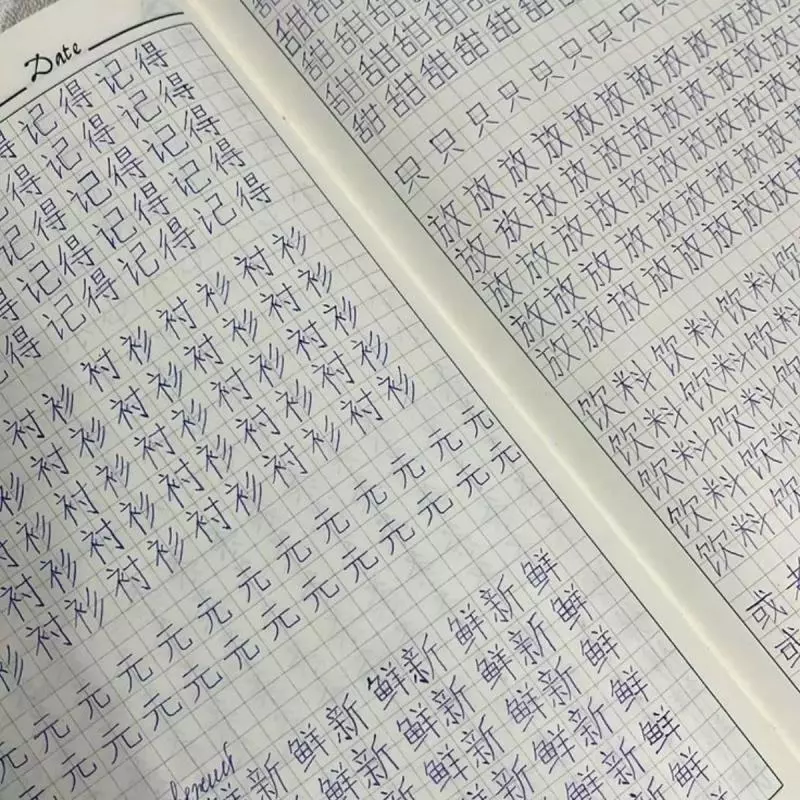 Date
得记得记得
记得记得记得
记得记得记得
得记得记得记得
得记得记得记得
衬衫衬衫衬衫衬衫
衫衬衫衬衫衬衫衬衫
衫衬衫衬衫衬衫衬衫
衬衫衬衫衬衫衬衫衬衫
衫衬衫衬衫衬衫衬衫衬衫
元元元元元元元元元元元元元
元元元元元元元元元元元元元
新鲜新鲜新鲜新鲜
鲜新鲜新鲜新鲜
鲜新鲜新鲜
新鲜新鲜
鲜新鲜
新鲜
甜甜甜甜甜甜甜
甜甜甜甜甜甜甜
甜甜甜甜甜甜甜甜
甜甜甜甜甜甜甜甜
只只只只只只只只只只
放放放放放放放放放放
放放放放放放放放放放
放放放放放放放放放放
放放放放放放放放放
放放放放放放放放
饮料饮料饮料
饮料饮料饮料
饮料饮料饮
饮料饮料
饮料饮
或者
或